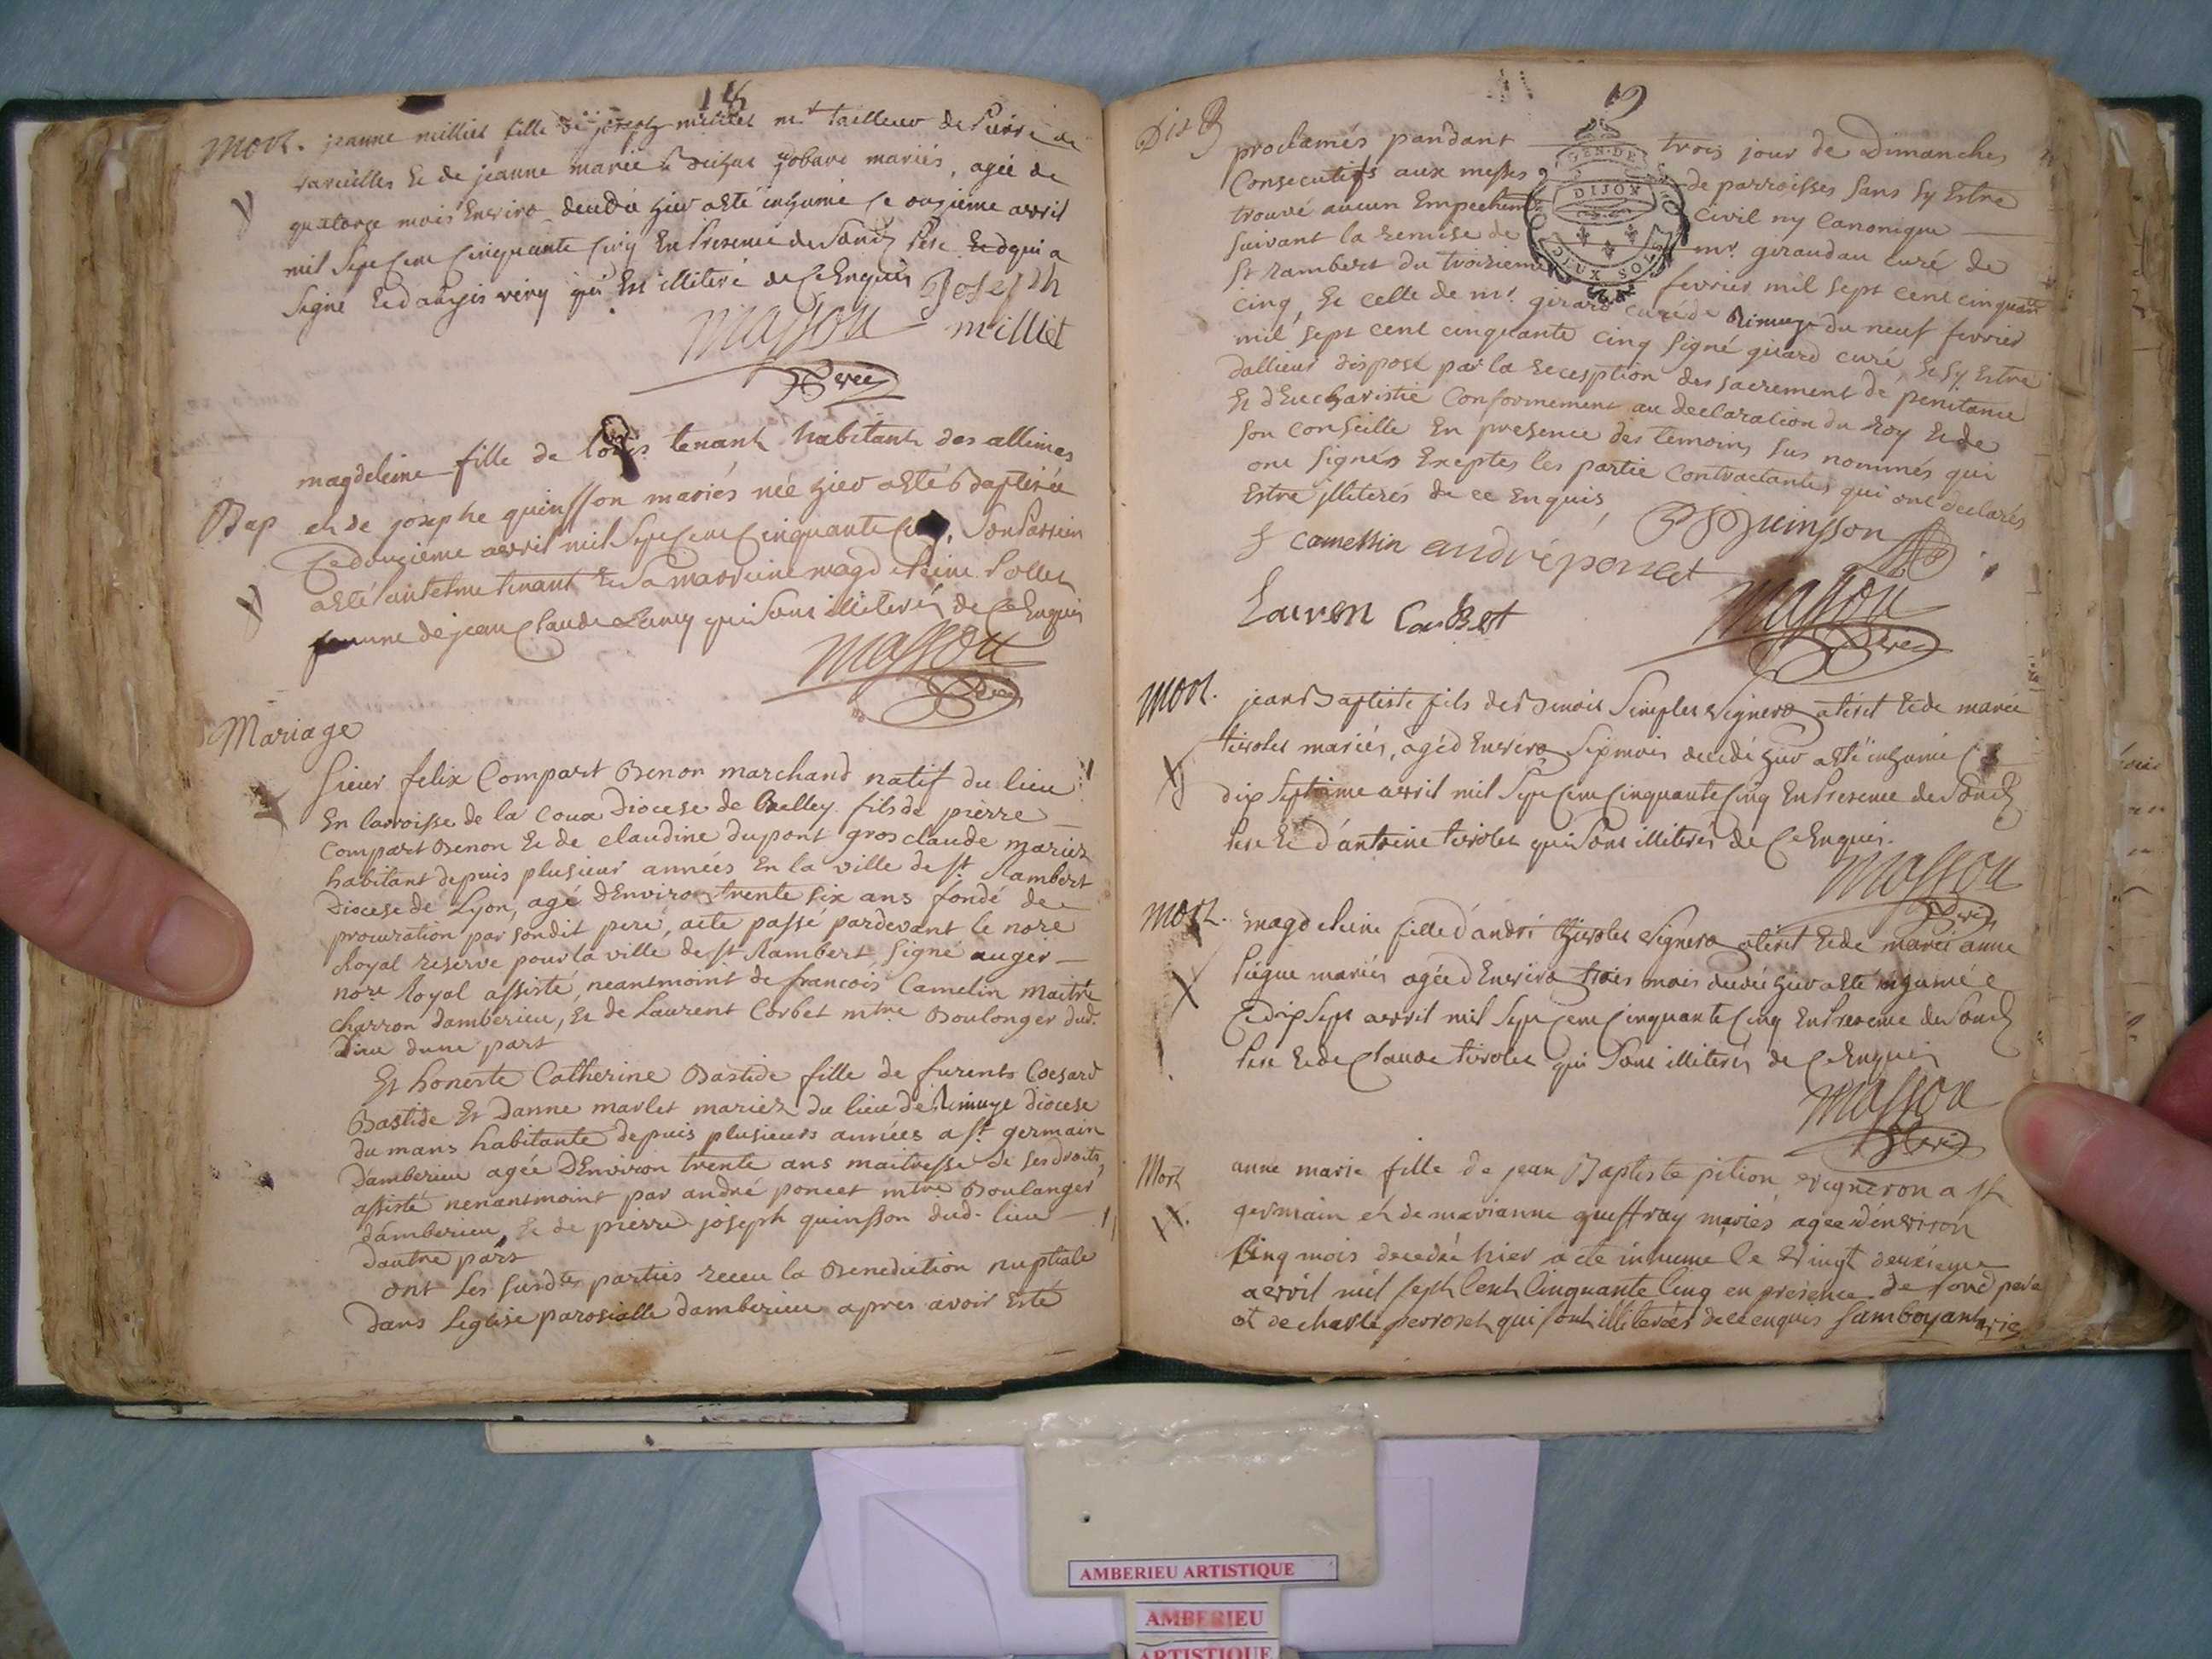 18
Mort. jeanne milliet fille de joseph milliet md tailleur de Pierre de
Vareilles Et de jeanne marie mariés, agée de
quatorze mois Enviro decedée hier a esté inhumé ce onzieme avril
mil Sept Cent Cinquante Cinq En Presence de Sond. Pere qui a
Signé Et qui Est illiteré de Ce Enquis Joseph
milliet
Masson
Vre
magdeleine fille de louis tenant habitant des allimes
Bap et de josephe quinsson mariés née hier a esté Baptisée
Ce douzieme avril mil Sept Cent Cinquante Son Parrein
a esté antelme tenant Et Sa marreine magdeleine Pollet
femme de jean Claude qui Sont illiterés de Ce Enquis
Masson
Vre
Mariage
Sieur felix Compart Benon marchand natif du lieu
En Parroisse de la Coua Diocese de Belley fils de pierre
Compart Benon Et de claudine dupont gros claude mariez
habitant depuis plusieur années En la ville de St Rambert
Diocese de Lyon, agé d'Environ trente six ans fondé de
procuration par sondit pere, acte passé pardevant le nore
Royal reservé pour la ville de St Rambert Signé auger
nore Royal assisté, neantmoint de francois Camelin maitre
charron damberieu, Et de Laurent Corbet mtre Boulonger dud.
Lieu dune part
Et honeste Catherine Bastide fille de furents Coesard
Bastide Et Danne marlet mariez du lieu de Rimuge diocese
du mans habitante depuis plusieurs années a St germain
Damberieu agée D'Environ trente ans maitresse de ses droits,
assisté nenantmoint par andré poncet mtre Boulanger
damberieu, Et de pierre joseph quinsson dud. lieu
dautre part
ont Les Susdtes parties receu la Benediction nuptiale
Dans Leglise parosialle damberieu apres avoir Esté
19
Dix 9
proclamés pandant trois jour de Dimanches
Consecutifs aux messes de parroisses Sans Sy Estre
trouvé aucun Empechem civil ny Canonique
Suivant la remise de mr. giraudau curé de
St Rambert du troisieme fevrier mil Sept cent cinquant
cinq, Et celle de mr. girard curé de Rimuge du neuf fevrier
mil Sept cent cinquante cinq Signé girard curé, Et Sy Estre
dallieur disposé par la reception des sacrement de penitance
Et d'Eucharistie Conformement au declaration du Roy Et de
Son Conseille En presence des temoins Sus nommés qui
ont Signés Exeptes les partie Contractantes qui ont declarés
Estre illiterés de ce Enquis,
GEN. DE DIJON
DEUX SOLS
PJ Quinsson
f camelin andré poncet
Lauren CorBet
Masson
Vre
Mort. jean Baptiste fils de Benoit Simplet vignero Et de marie
tirolet mariés, agé d'Enviro Six mois decedé hier a esté inhumé Ce
dix Septieme avril mil Sept Cent Cinquante Cinq En Presence de Sond.
Pere Et d'antoine tirolet qui Sont illiterés de Ce Enquis.
Masson
Vre
Mort. magdeleine fille d'andré tirolet vignero Et de marie anne
mariés agée d'Enviro trois mois decedée hier a esté inhumée
Ce dix Sept avril mil Sept Cent Cinquante Cinq En Presence de Sond.
Pere Et de Claude tirolet qui Sont illiterés de Ce Enquis
Masson
Vre
Mort anne marie fille de jean Baptiste pition vigneron a St
germain et de marianne gueffray mariés agee d'environ
Cinq mois decedée hier a ete inhume le vingt deuxieme
avril mil sept Cent Cinquante Cinq en presence de sond pere
et de charle perroset qui sont illiterées de ce enquis Samboyant vic
AMBERIEU ARTISTIQUE
AMBERIEU
ARTISTIQUE